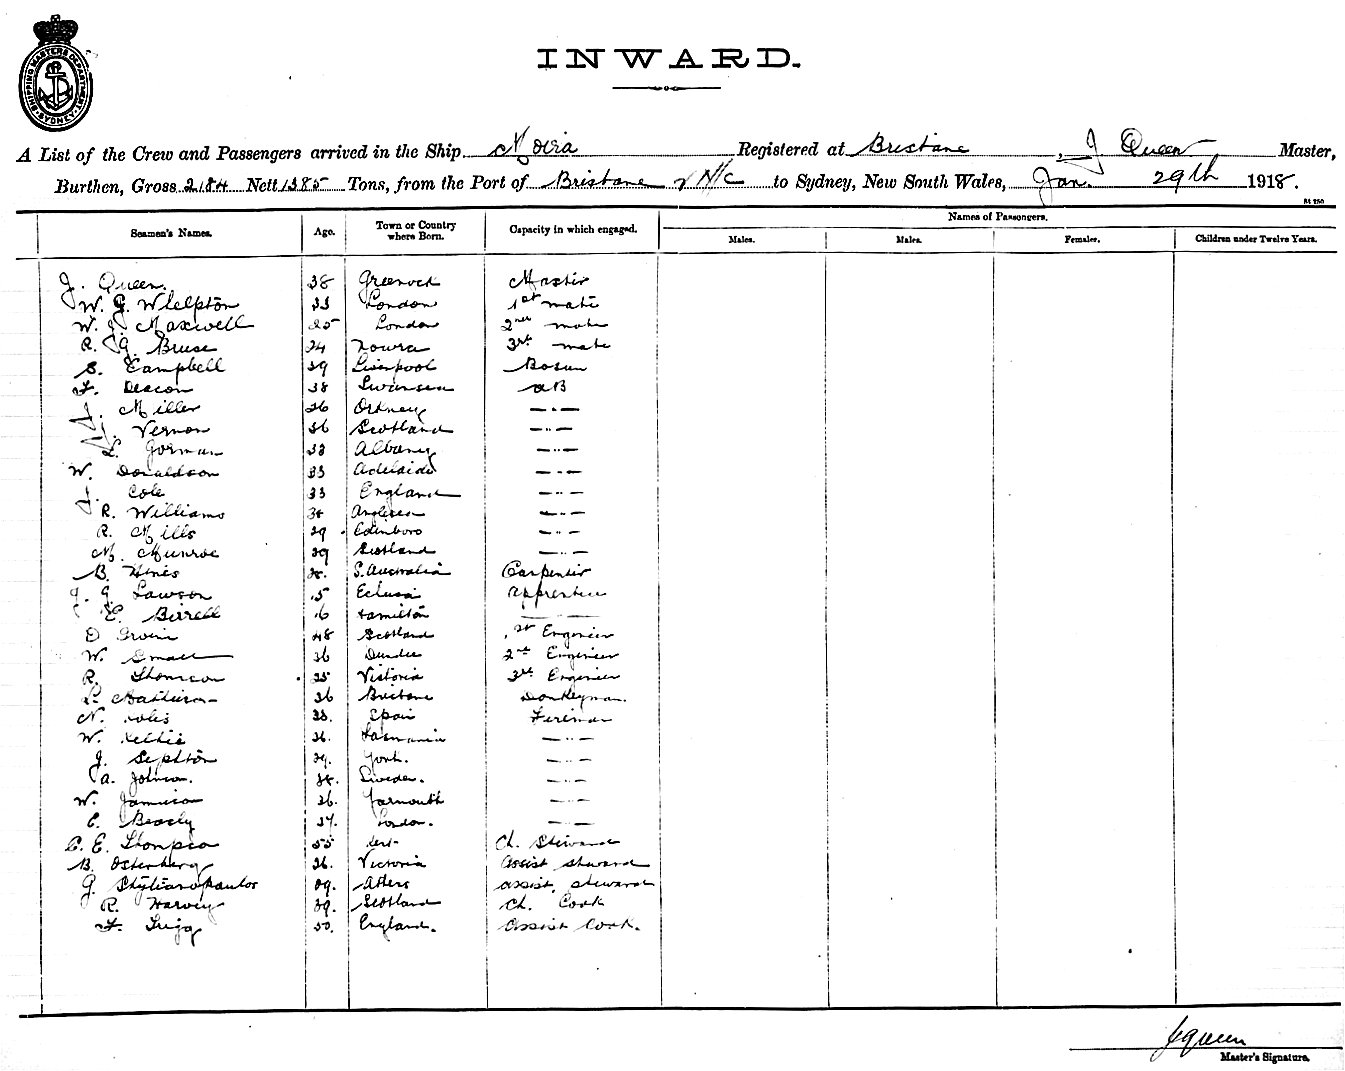 SHIPPING MASTERS DEPARTMENT SYDNEY
INWARD.
A List of the Crew and Passengers arrived in the Ship Registered at Brisbane, J Queen Master,
Burthen, Gross 2184 Nett 1385 Tons, from the Port of Brisbane & N/C to Sydney, New South Wales, Jan. 29th 1918.
Names of Passengers.
Seamen's Names. Age. Town or Country where Born. Capacity in which engaged. Males. Males. Females. Children under Twelve Years.
J. Queen. 38 Greenock Master
W. G. Whelpton 33 London 1st mate
W. J. Maxwell 25 London 2nd mate
R. G. Bruse 24 Nowra 3rd mate
S. Campbell 39 Liverpool Bosun
F. Deacon 38 Swansea AB
J. Miller 26 Orkney — " —
J. Vernon 36 Scotland — " —
L. Gorman 33 Albany — " —
W. Donaldson 33 Adelaide — " —
J. Cole 33 England — " —
R. Williams Anglesea — " —
R. Mills 29 Edinboro — " —
M. Munroe 29 Scotland — " —
B. Hines S. Australia Carpenter
J. G. Lawson 15 Echuca apprentice
E. Birrell 16 Hamilton — —
D Irvin 48 Scotland 1st Engineer
W. Small 36 Dundee 2nd Engineer
R. Thomson 35 Victoria 3rd Engineer
L. Mathieson 36 Brisbane Donkeyman.
N. 33. Spain Fireman
W. Kellie 36. Tasmania — " —
J. Sephton 39. York. — " —
A. Johnson. Sweden. — " —
W. Jamieson 26. Yarmouth — " —
C. Beasly 37. London. — " —
C. E. Thompson 55 Ch. Steward
B. Osterberg 36. Victoria Assist steward
G. Stylianopoulos 29. Athens assist. steward
R. Harvey 39. Scotland Ch. Cook
F. Trigg 50. England. Assist Cook.
J Queen
Master's Signature.